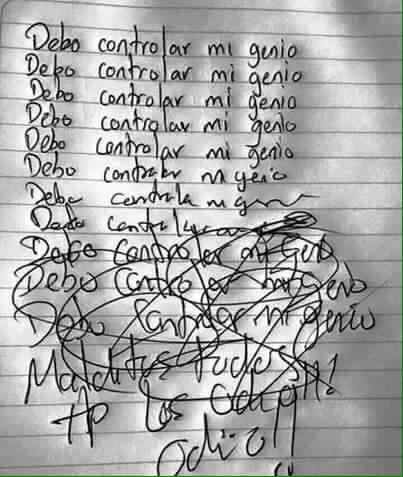 Debo controlar mi genio
Debo controlar mi genio
Debo controlar mi genio
Debo controlar mi genio
Debo controlar mi genio
Debo controlar m genio
Debo
Debo
Debo controlar mi Genio
Debo controlar mi Genio
Debo controlar mi genio
Malditos todos
los odio!!!
odio!!